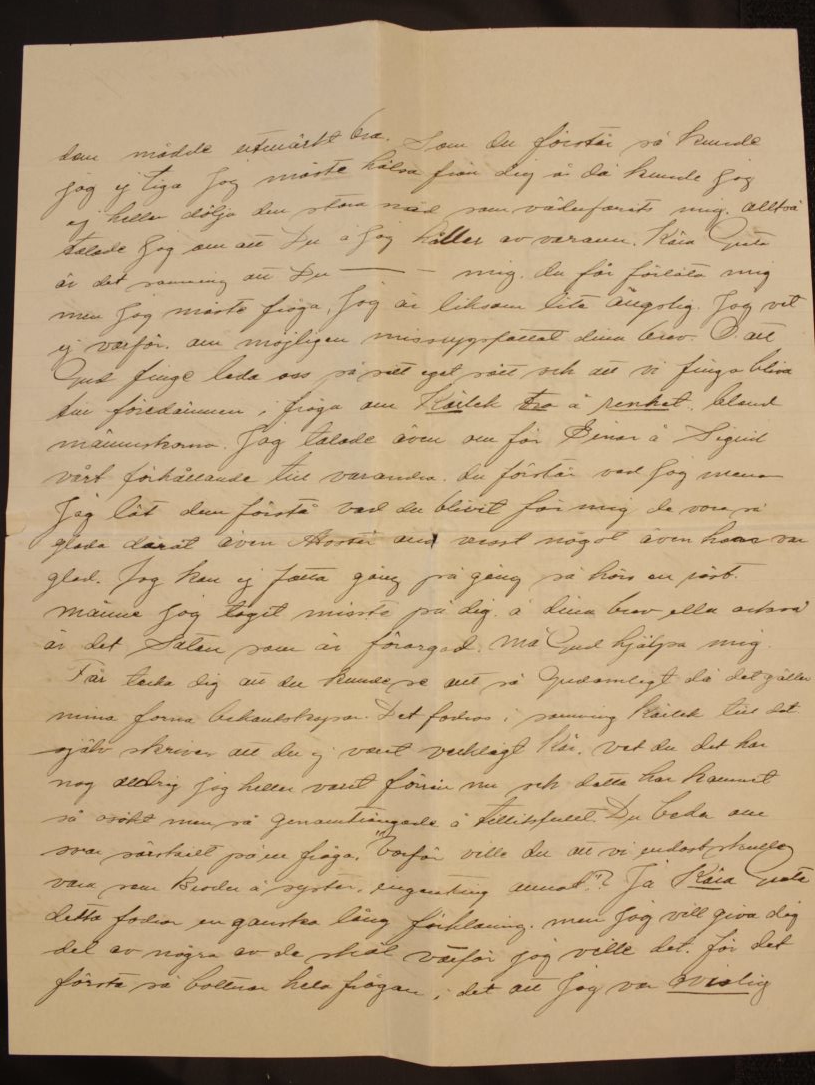 dem mådde utmärkt bra. Som du förstår så kunde
jag ej tiga jag måste hälsa från dig å då kunde jag
ej heller dölja den stora nåd som vederfarits mig. alltså
talade jag om att Du å jag håller av varann. Kära Greta
är det sanning att Du — — mig. du får förlåta mig
men jag måste fråga, jag är liksom lite ängslig. Jag vet
ej varför. om möjligen missuppfattat dina brev. O att
Gud finge leda oss på sitt eget sätt och att vi finge bliva
till föredömen i fråga om Kärlek tro å renhet. bland
människorna. Jag talade även om för Einar å Sigrid
vårt förhållande till varandra. du förstår vad jag menar
Jag lät dem förstå vad du blivit för mig de vora så
glada däråt även visst något även han var
glad. Jag kan ej fatta gång på gång så hörs en röst.
månne jag taget misste på dig. å dina brev eller också
är det Satan som är förargad. Må Gud hjälpa mig.
Får tacka dig att du kunde se allt så då det gäller
mina forna bekantskaper. Det fodras i sanning Kärlek till det
själv skriver att du ej varit verkligt Kär. vet du det har
nog aldrig jag heller varit förrän nu och detta har kommit
så osökt men så genomträngande å tillitsfullt. Du beder om
svar särskilt på en fråga. "Varför ville du att vi endast skulle
vara som Broder å syster. engenting annat"? Ja Kära Greta
detta fodrar en ganska lång förklaring. men jag vill giva dig
del av några av de skäl varför jag ville det. För det
första så bottnar hela frågan i det att jag var ovärdig